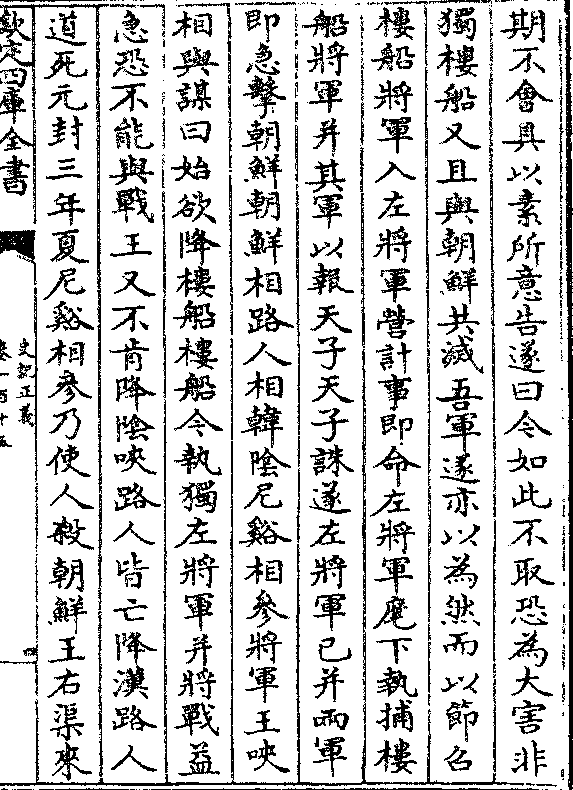 期不會具以素所意告遂曰今如此不取恐為大害非
獨樓船又且與朝鮮共滅吾軍遂亦以為然而以節召
樓船將軍入左將軍營計事即命左將軍麾下執捕樓
船將軍并其軍以報天子天子誅遂左將軍已并兩軍
即急擊朝鮮朝鮮相路人相韓陰尼谿相參將軍王唊
相與謀曰始欲降樓船樓船今執獨左將軍并將戰益
急恐不能與戰王又不肯降陰唊路人皆亡降漢路人
道死元封三年夏尼谿相參乃使人殺朝鮮王右渠來
欽定四庫全書
史記正義
卷一百十五